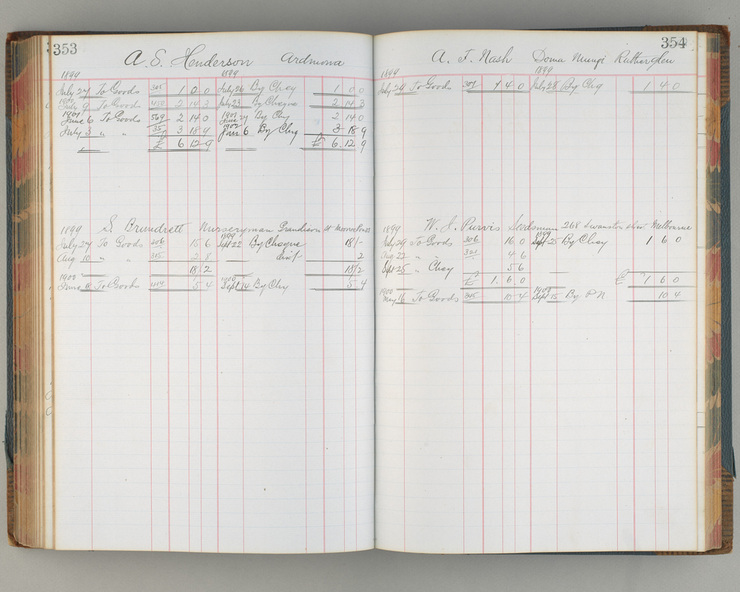 353
A. S. Henderson Ardmona
1899 1899
July 27 To Goods 305 1 0 0 July 26 By Cheq 1 0 0
To Goods 2 14 3 July 23 By Cheque 2 14 3
1901 June 6 To Goods 569 2 14 0 1901 June 27 By Chq 2 14 0
July 3 " " 3 18 9 1902 Jan 6 By Chq 3 18 9
£ 6 12 9 £ 6 12 9
S. Brundrett Nurseryman St Moonee Ponds
1899 1899
July 27 To Goods 306 15 6 Sept 22 By Cheque 18/-
Aug 10 " " 2 8 disct 2
18 2 18/2
1900 1900
June 9 To Goods 5 4 Sept 14 By Chq 5 4
354
A. J. Nash Doma Mungi Rutherglen
1899 1899
July 29 To Goods 307 1 4 0 July 28 By Chq 1 4 0
W. J. Purvis Seedsman 268 Swanston St Melbourne
1899 1899
July 29 To Goods 306 16 0 Sept 25 By Chq 1 6 0
Aug 23 " " 4 6
Sept 25 " Chq 5 6
£ 1 6 0 £ 1 6 0
1900 1900
May 16 To Goods 10 4 Sept 15 By P N 10 4